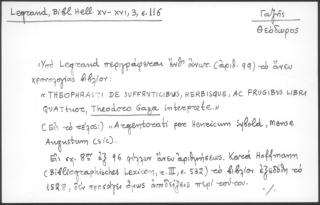 Legrand, Bibl. Hell. XV-XVI, 3, σ. 116
Γαζῆς
Θεόδωρος
Ὑπὸ Legrand περιγράφεται ἔνθ' ἀνωτ. (ἀριθ. 99) τὸ ἄνευ
χρονολογίας βιβλίον:
« THEOPHRASTI DE SUFFRUTICIBUS, HERBISQUE, AC FRUGIBUS LIBRI
QUATtuor, Theodoro Gaza interprete.»
(Εἰς τὸ τέλος:) «Argentorati per Henricum Sybold, Mense
Augustum (sic).
Εἰς σχ. 8ον ἐξ 96 φύλλων ἄνευ ἀριθμήσεως. Κατὰ Hoffmann
(Bibliographisches Lexicon, τ. III, σ. 532) τὸ βιβλίον ἐξεδόθη τὸ
1528, δὲν προσάγει ὅμως ἀποδείξεις περὶ τούτου.